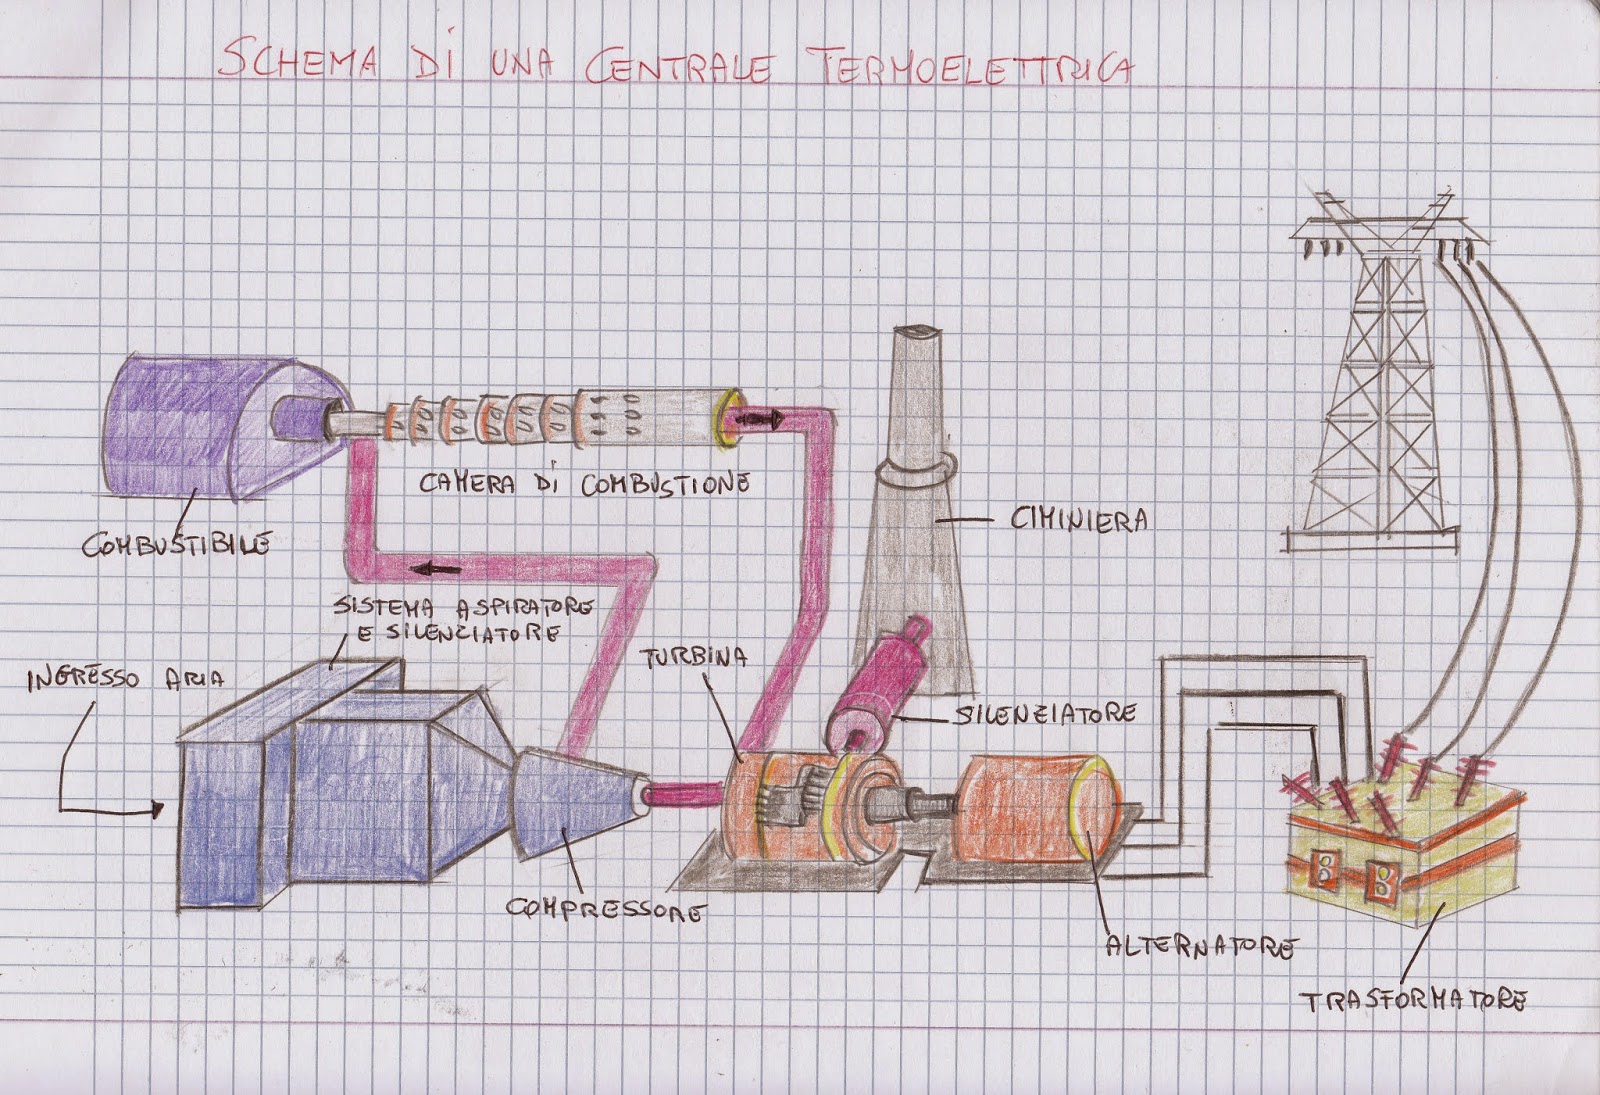 SCHEMA DI UNA CENTRALE TERMOELETTRICA
CAMERA DI COMBUSTIONE
CIMINIERA
COMBUSTIBILE
SISTEMA ASPIRATORE
E SILENZIATORE
TURBINA
INGRESSO ARIA
SILENZIATORE
COMPRESSORE
ALTERNATORE
TRASFORMATORE